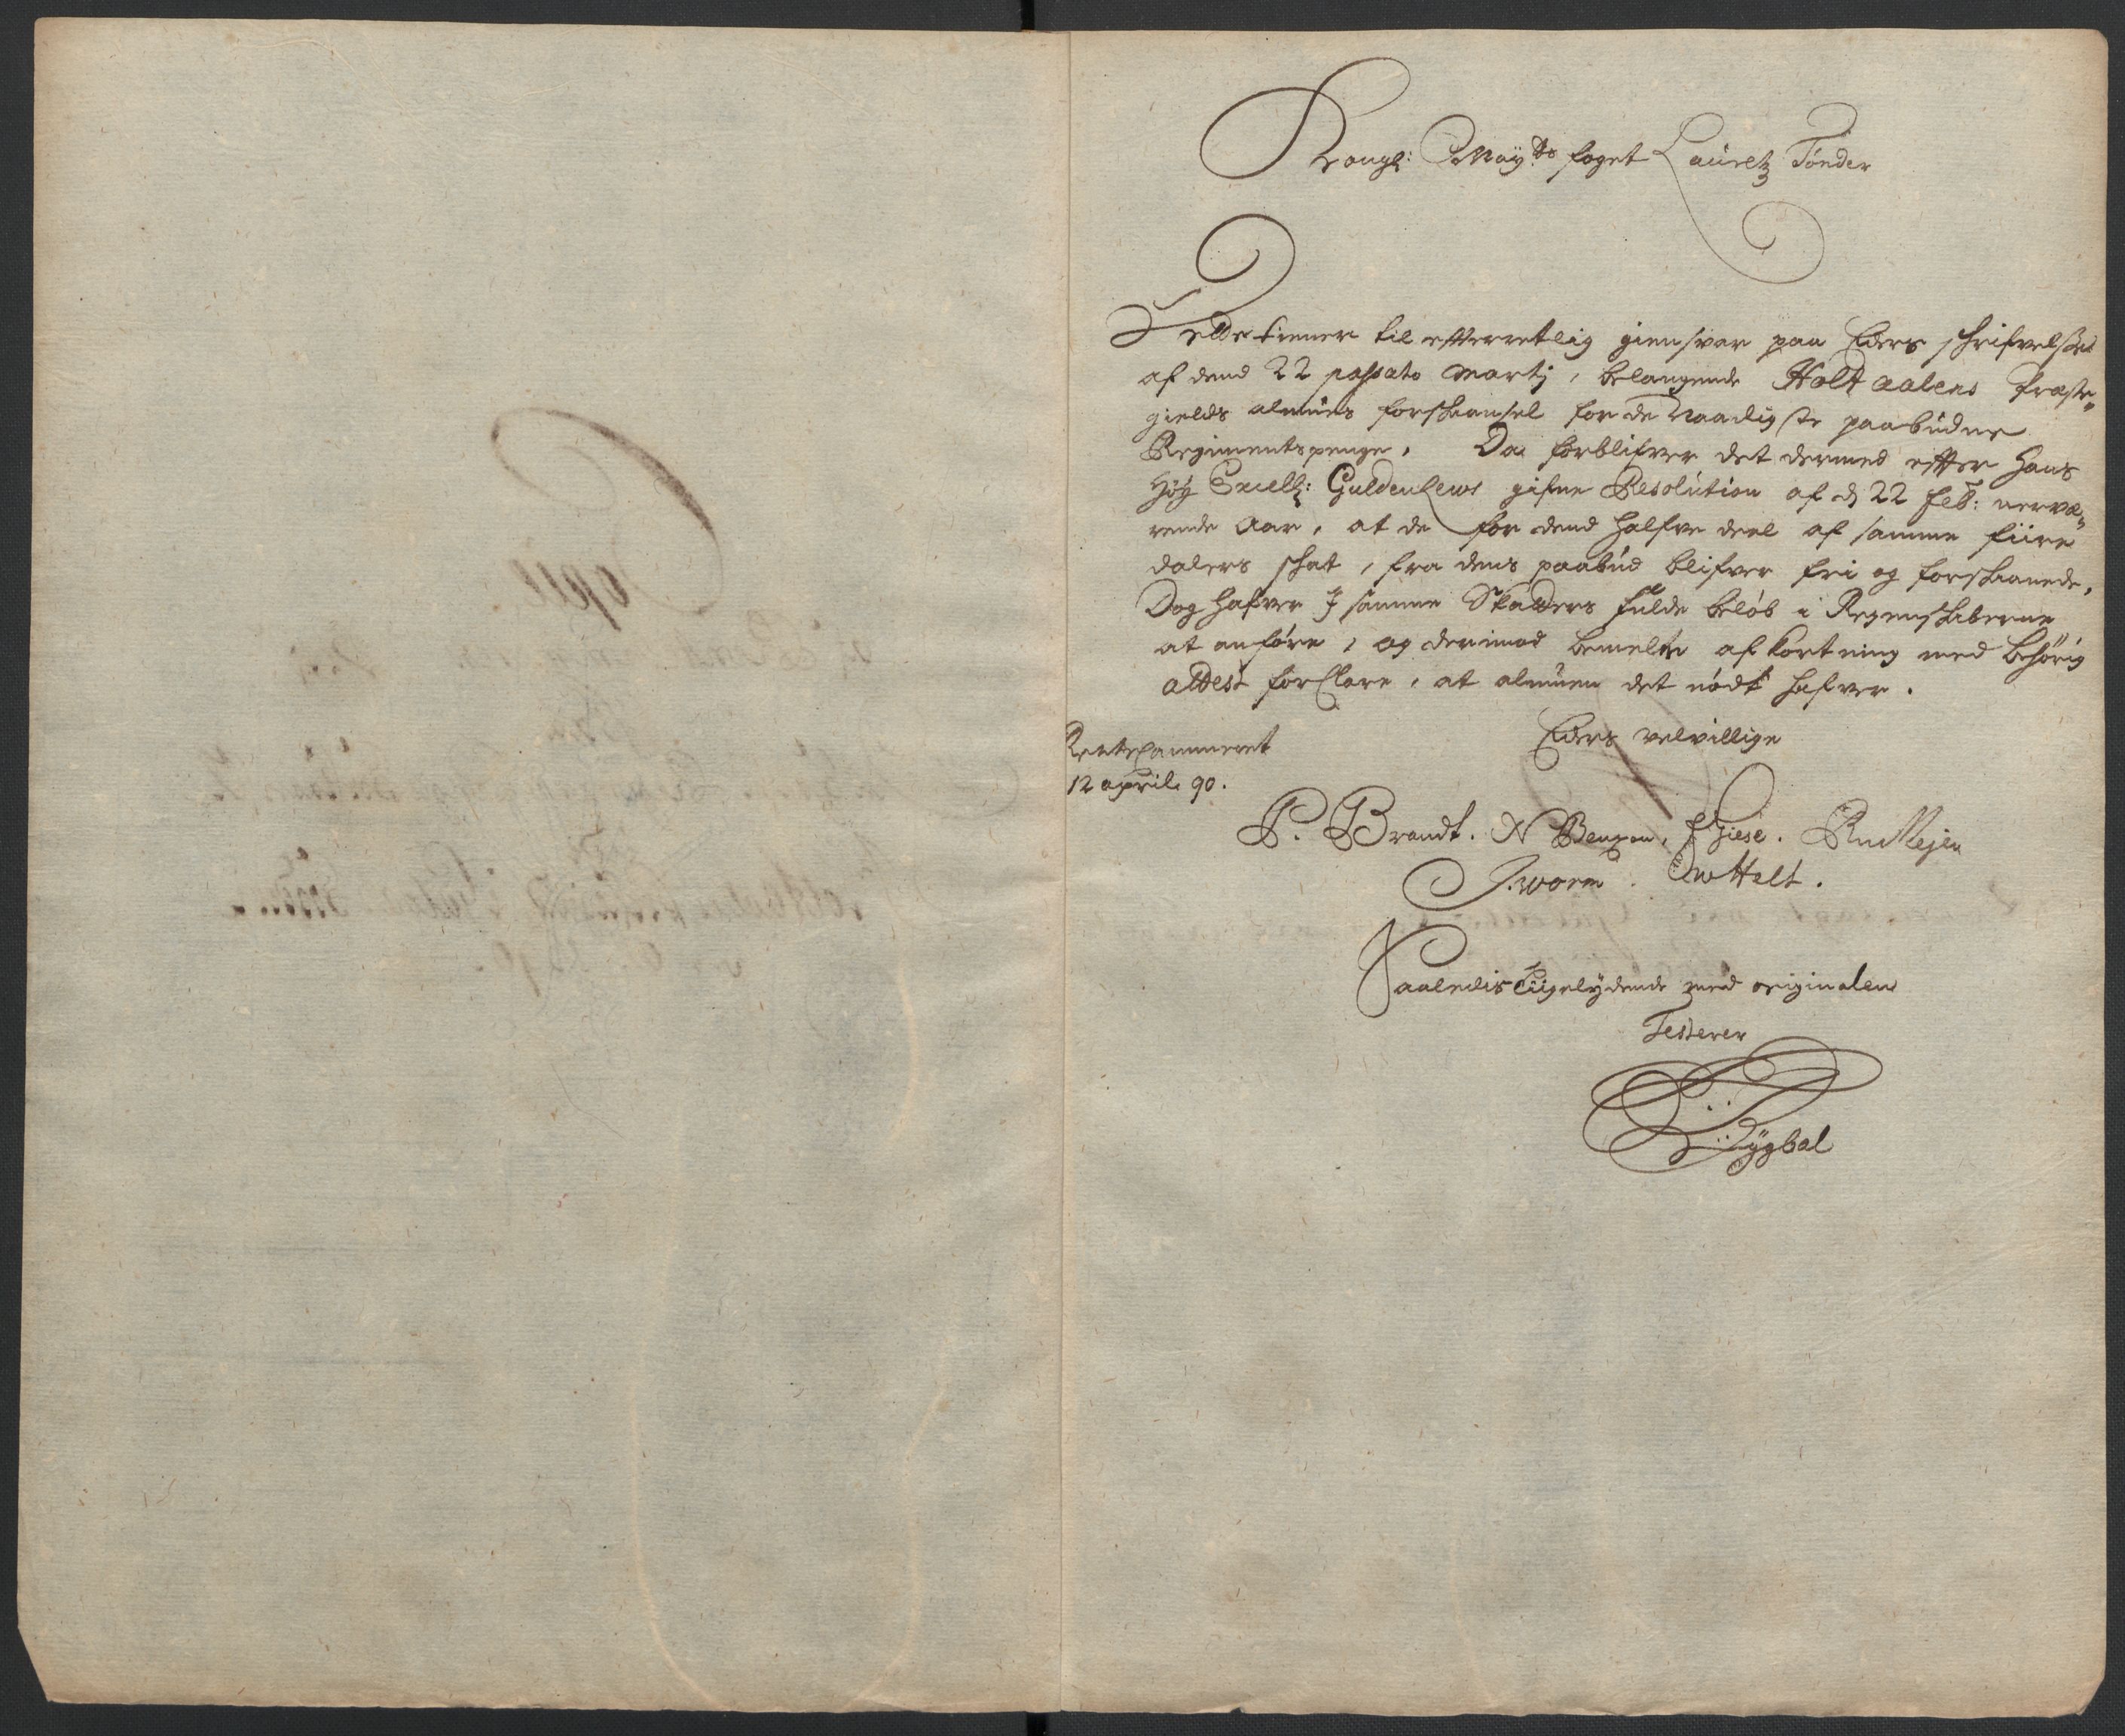 Kongl: May:ts foget Lauretz Tønder
Dette tiener til efterretlig giensvar paa Eders schrifvelse
af dend 22 passato Martj, belangende Holtaalens Præste„
gields almues forskaansel for de Naadigste paabudne
Regimentspenge. Da forblifver det dermed efter Hans
Høy Excell: Guldenlews gifne Resolution af d 22 Feb: nervæ„
rende Aar, at de for dend halfve deel af samme fiire
dalers schat, fra dens paabud blifver fri og forskaanede,
Dog hafver I samme Skatters fulde beløb i Regenskaberne
at anføre, og derimod bemelte afkortning med behørig
attest forclare, at almuen det nødt hafver.
Eders velvillige
Rentecammeret
12 april 90.
P. Brandt. N Benzon, H Giese. 
J. Worm. CW Helt.
Saaledis Liigelydende med originalen
Testerer